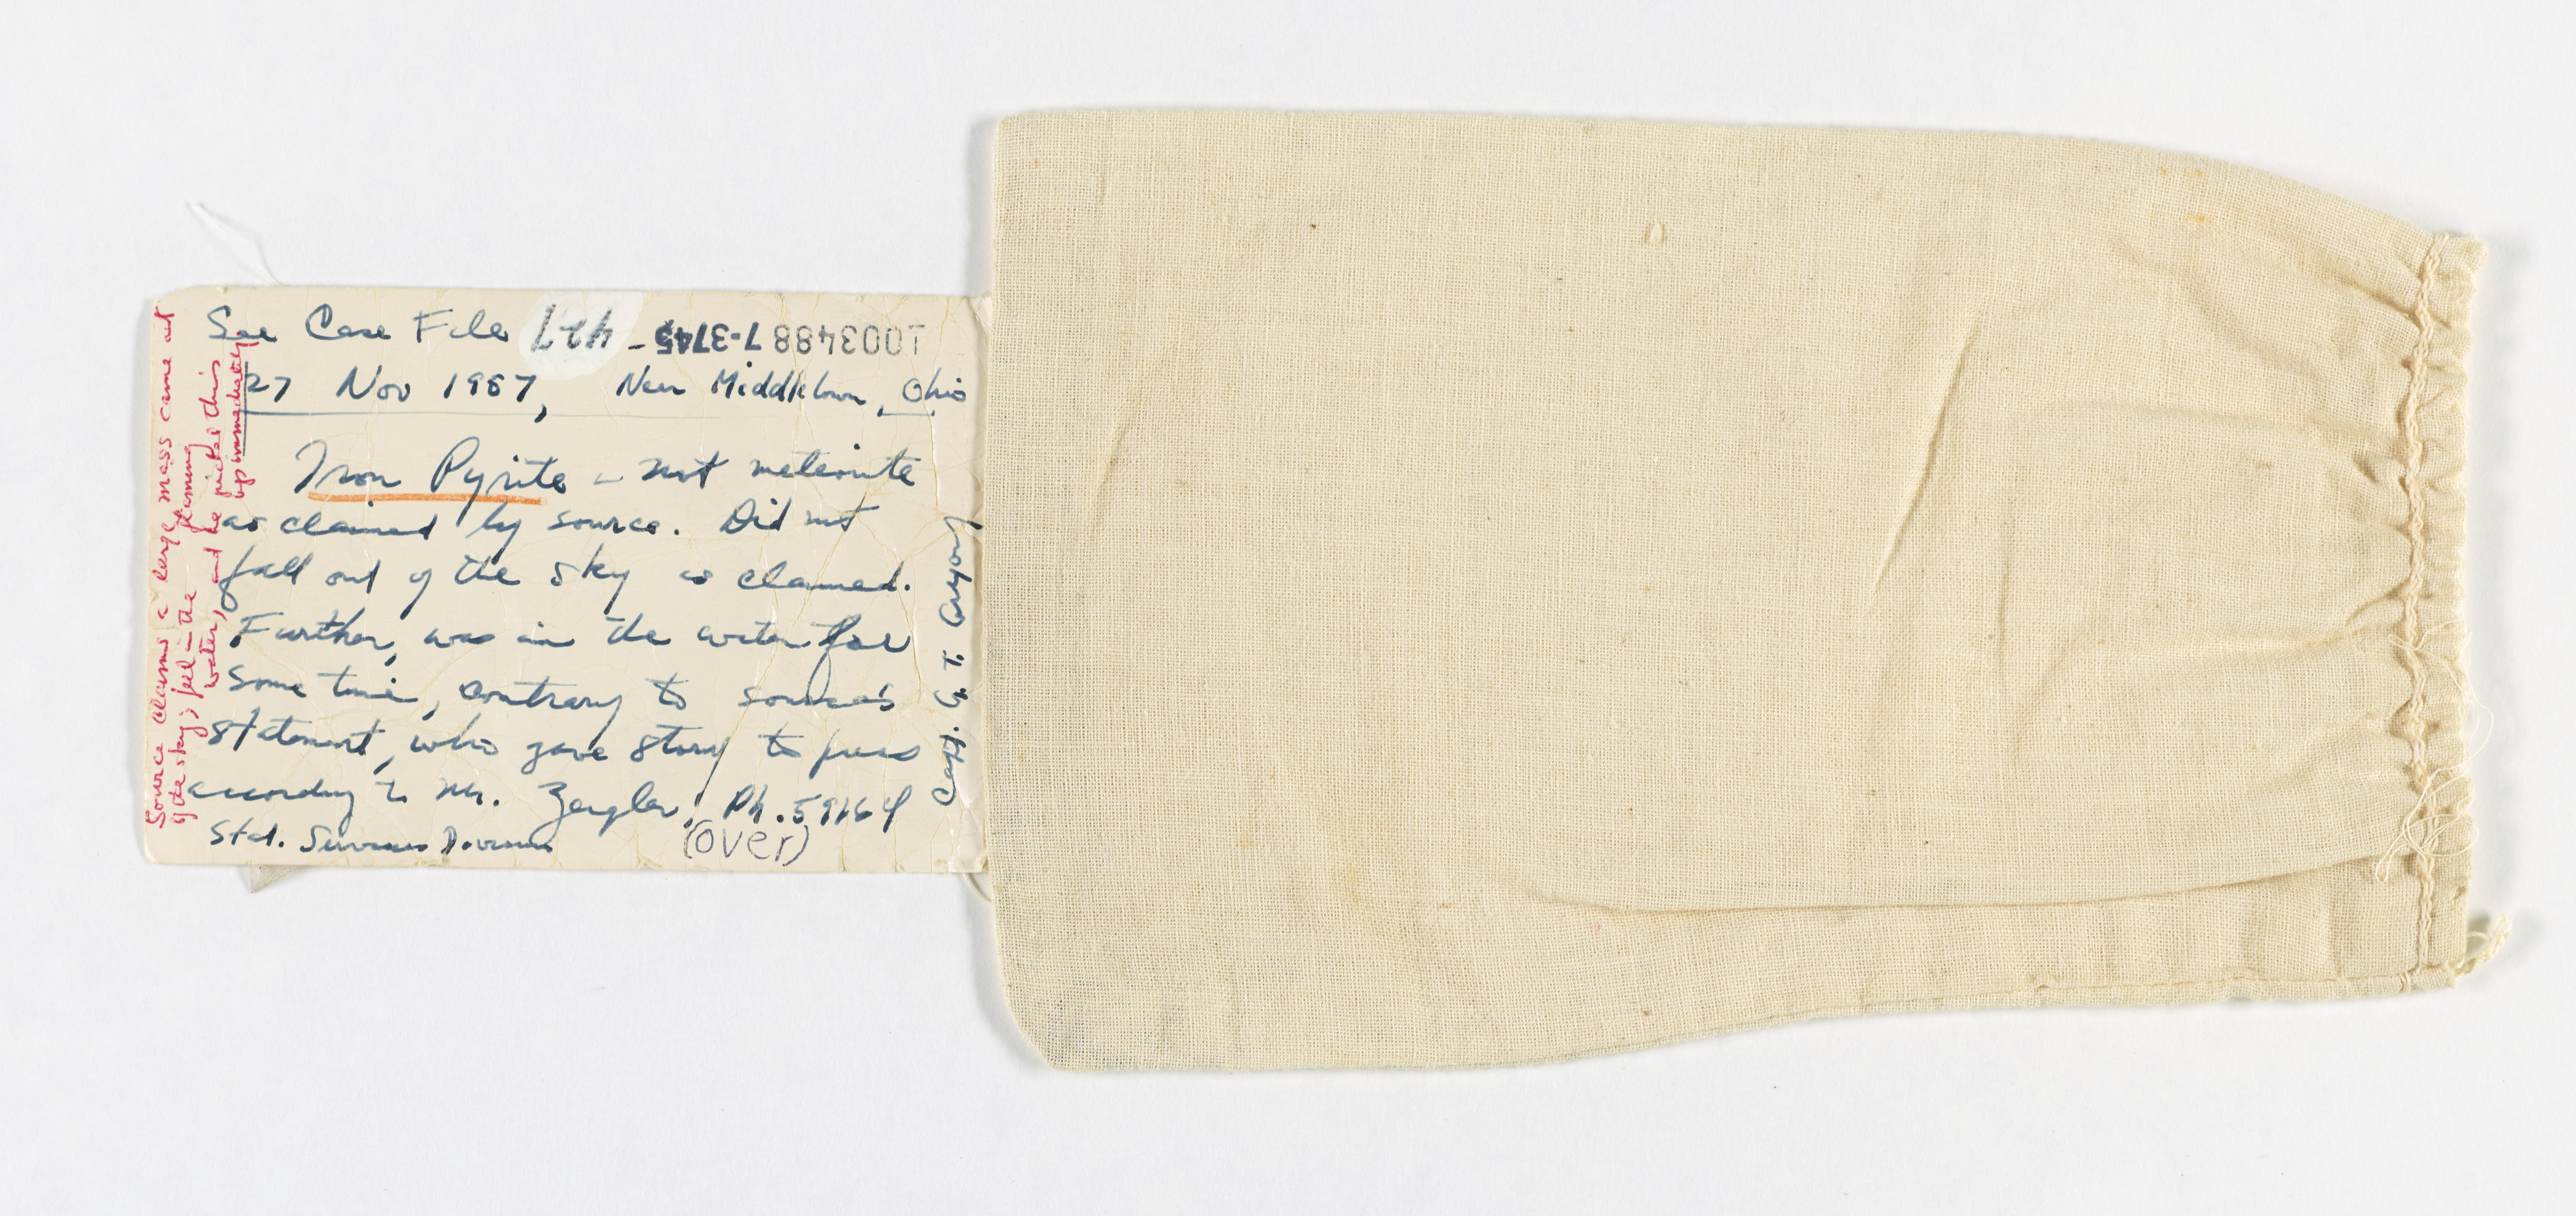 See Case File
1003488 7-3745 - 427
27 Nov 1957, Near Middletown, Ohio
Iron Pyrite - not meteorite
as claimed by source. Did not
fall out of the sky as claimed.
Further, was in the water for
some time, contrary to source's
statement, who gave story to press
according to Mr. Zeigler, Ph. 59164
Std. Services Division
(over)
Capt. G. T. Gregory
Source claims a large mass came out
of the sky; fell in the flaming
water, and he picked this
up immediately